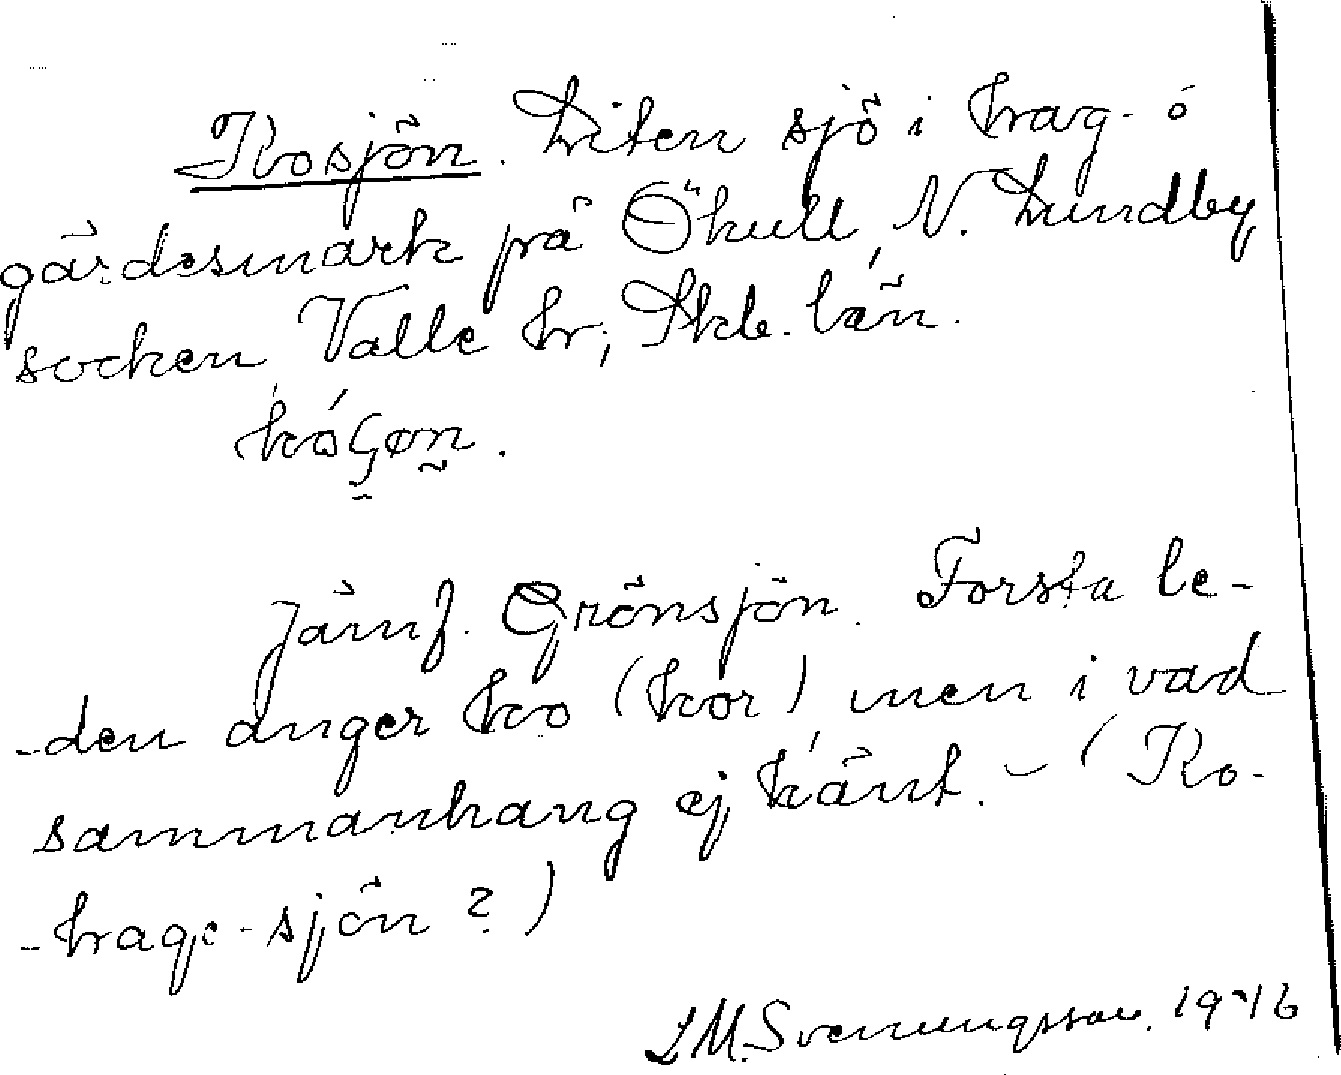 Kosjön. Liten sjö i hag- o
gärdesmark på Ökull, N. Lundby
socken, Valle hr; Skb. län.
Jämf. Grönsjön. Första le-
-den anger ko (kor) men i vad
sammanhang ej känt. – (Ko-
-hage-sjön?)
L M. Svenungsson. 1946